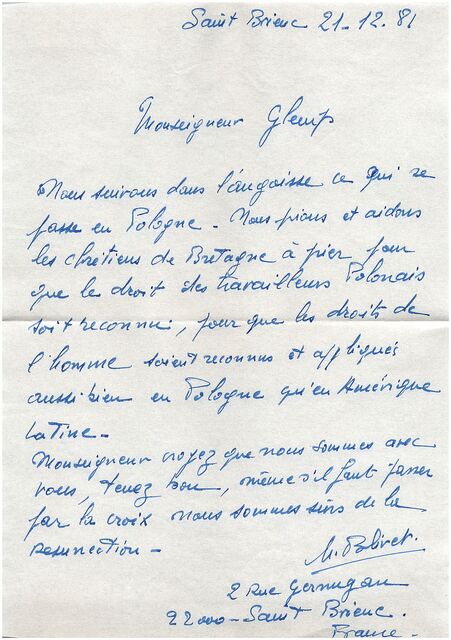 Saint Brieuc 21-12.81
Monseigneur Glemp
Nous suivons dans l'angoisse ce qui se
passe en Pologne - Nous prions et aidons
les chrétiens de Bretagne à prier pour
que le droit des travailleurs Polonais
soit reconnu, pour que les droits de
l'homme soient reconnus et appliqués
aussi bien en Pologne qu'en Amérique
Latine -
Monseigneur croyez que nous sommes avec
vous, tenez bon, même s'il faut passer
par la croix nous sommes sûrs de la
resurrection -
2 Rue
22000 - Saint Brieuc.
France -